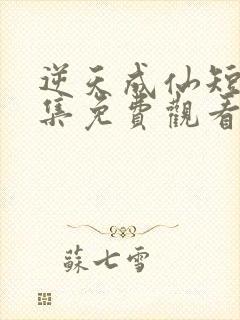 逆天成仙短
集免費觀看
蘇七雪